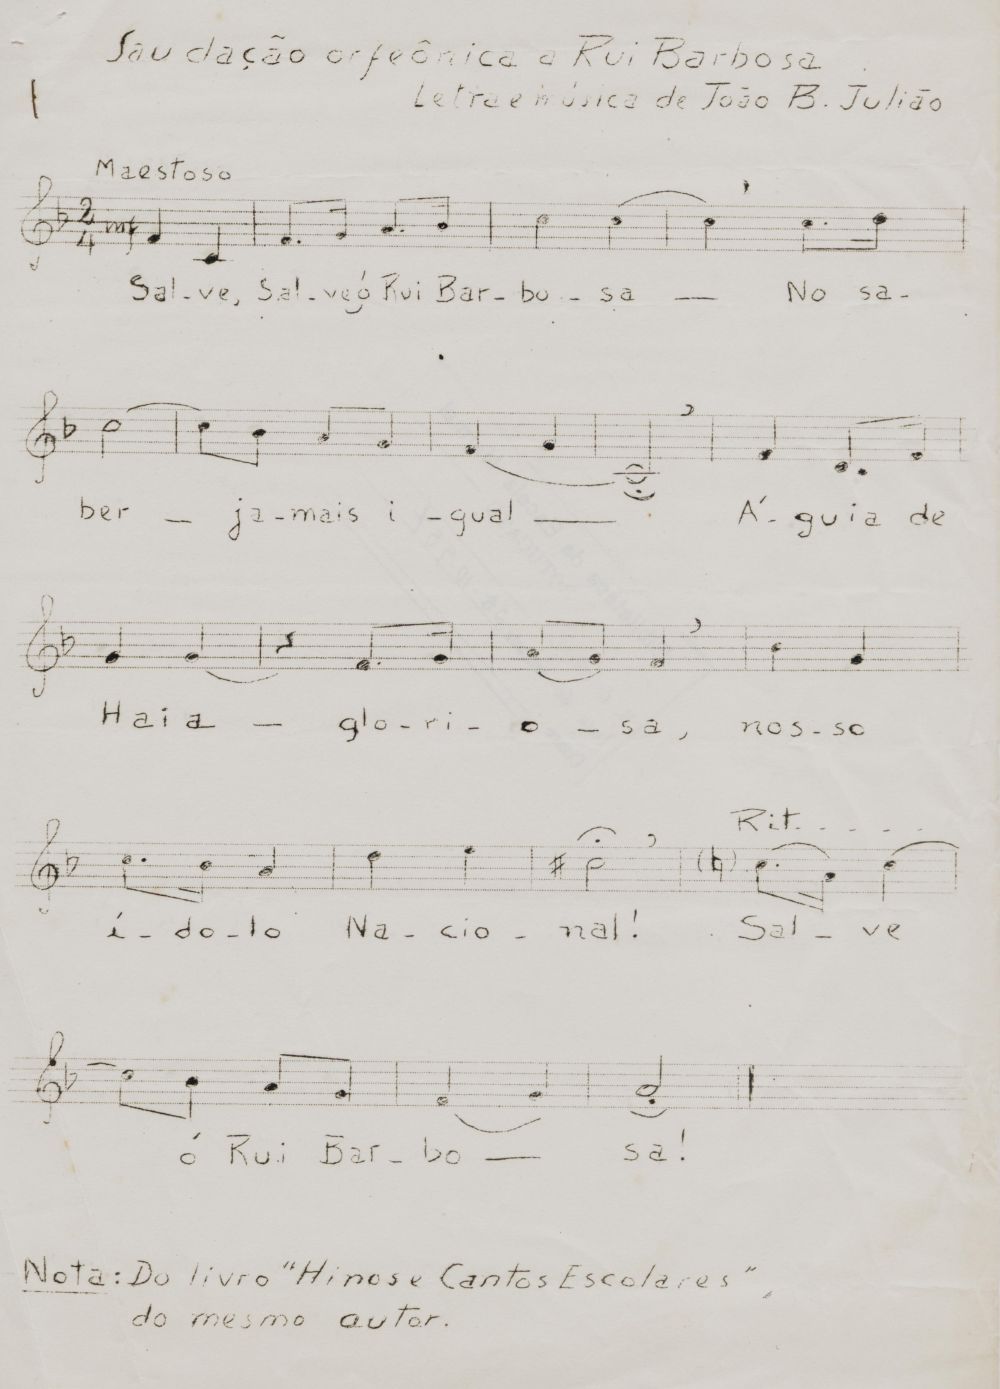 Saudação orfeônica a Rui Barbosa
Letra e música de João B. Julião
Maestoso
2
4
mf
Sal-ve, Sal-ve ó Rui Bar-bo-sa — No sa-
ber — ja-mais i-gual — Á-guia de
Haia — glo-ri-o-sa, nos-so
Rit. . . . .
í-do-lo Na-cio-nal! Sal-ve
ó Rui Bar-bo — sa!
Nota: Do livro "Hinos e Cantos Escolares",
do mesmo autor.